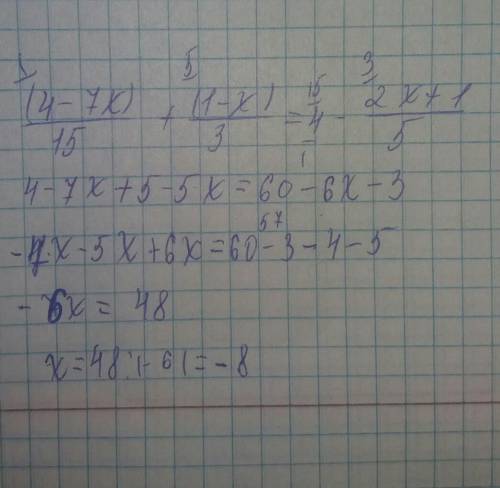 (4-7x)/15 + 5 (1-x)/3 = 15 4/1 - 3 2x+1/5
4-7x+5-5x=60-6x-3
-7x-5x+6x=60-3-4-5
57
-6x = 48
x=48:(-6)=-8